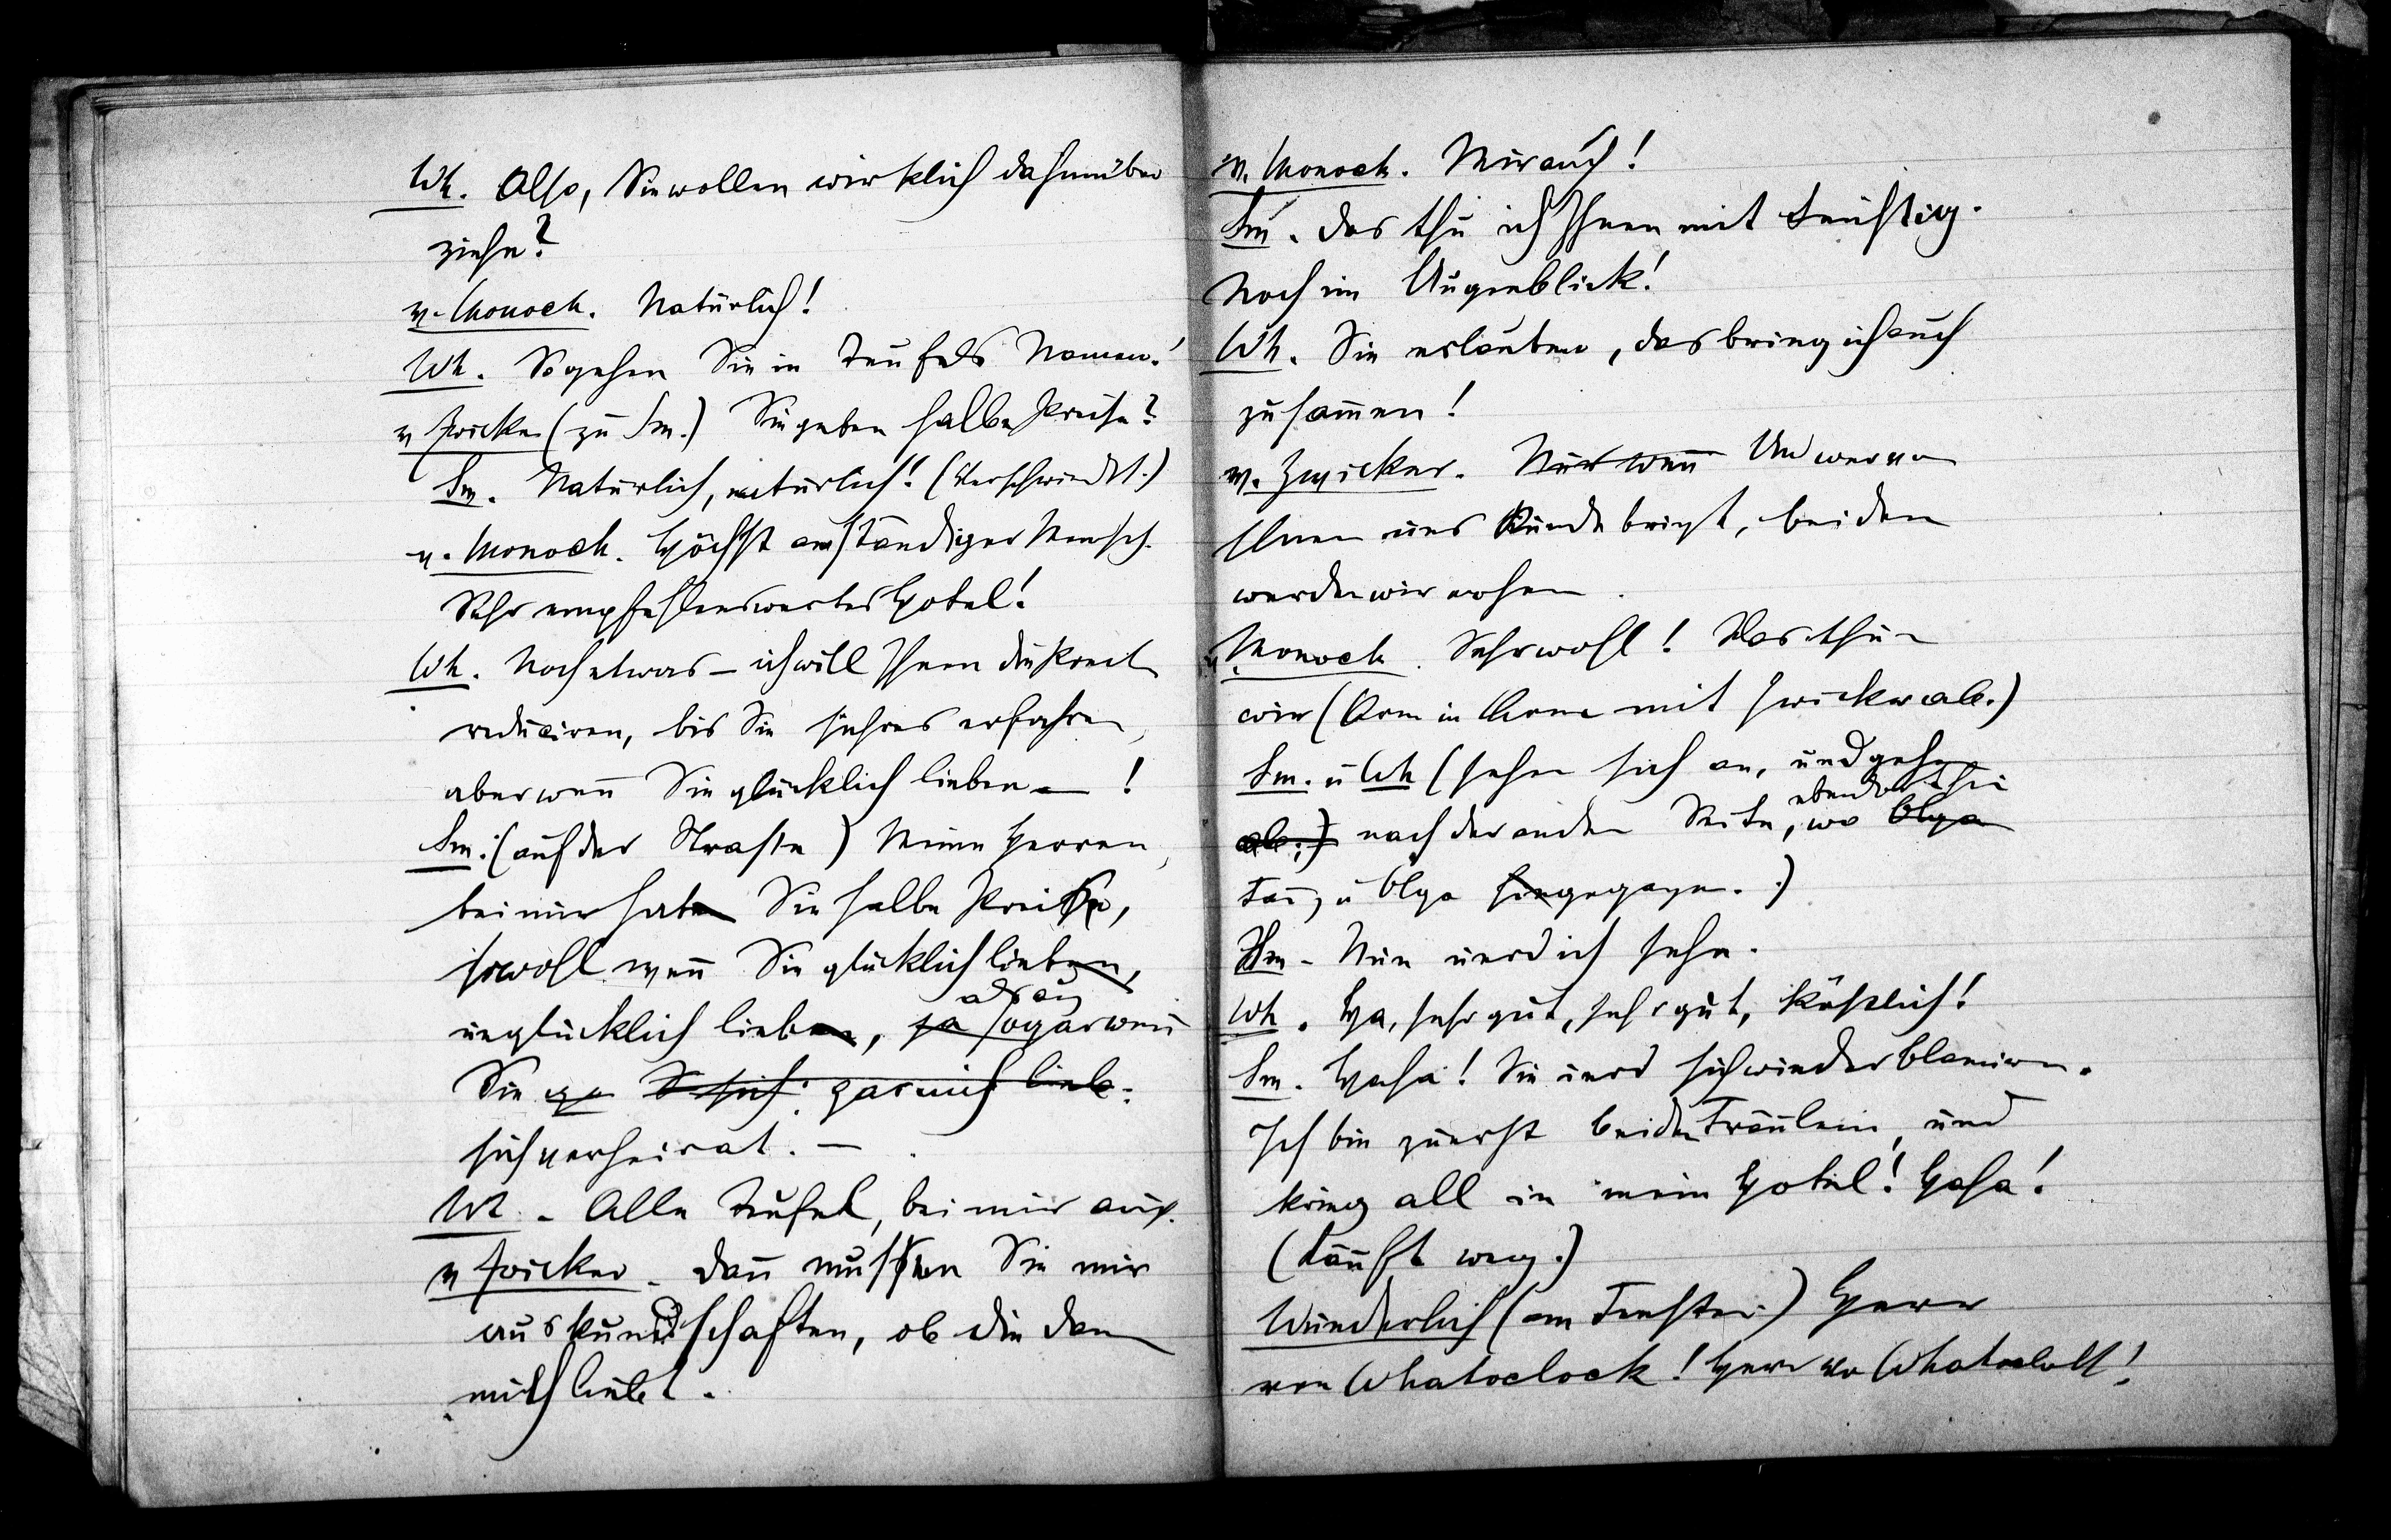 Wh. Also, Sie wollen wirklich dahinüber
ziehn?
v. Monoch. Natürlich!
Wh. So gehen Sie in Teufels Namen!
v Zwicker (zu Sm.) Sie geben halbe Preise?
Sm. Natürlich, natürlich! (Verschwindet.)
v. Monoch. Höchst anständiger Mensch.
Sehr empfehlenswertes Hotel!
Wh. Noch etwas – ich will Ihnen die Preise
reduciren, bis Sie sichres erfahren,
aber wenn Sie glücklich lieben – !
Sm: (auf der Strasse) Meine Herren,
bei mir haben Sie halbe Preise,
sowohl wenn Sie glücklich lieben,
als auch
unglücklich lieben, ja sogar wenn
Sie gar nich liebe.
sich verheirat. –
Wh. – Alle Teufel, bei mir auch.
v Zwicker – Dann müssen Sie mir
auskundschaften, ob die Dame
mich liebt.
v. Monoch. Mir auch!
Sm. Das thu ich Ihnen mit
Noch im Augenblick!
Wh. Sie erlauben, das bring ich auch
zusammen!
v. Zwicker. Nur wenn Und wer von
Ihnen uns Kunde bringt, bei dem
werden wir wohnen.
v. Monoch. Sehr wohl! Das thun
wir (Arm in Arm mit Zwicker ab.)
Sm. u Wh (sehen sich an, und gehn
ebendorthin
ab.) nach der andern Seite, wo Olga
u Olga hingegangen.)
Sm – Nun werd ich sehn.
Wh. Ha, sehr gut, sehr gut, köstlich!
Sm. Haha! Sie werd sich wieder blamiren.
Ich bin zuerst bei den Fräulein, und
krieg all in mein Hotel! Haha!
(Läuft weg.)
Wunderlich (am Fenster) Herr
von Whatoclock! Herr von Whatoclock!